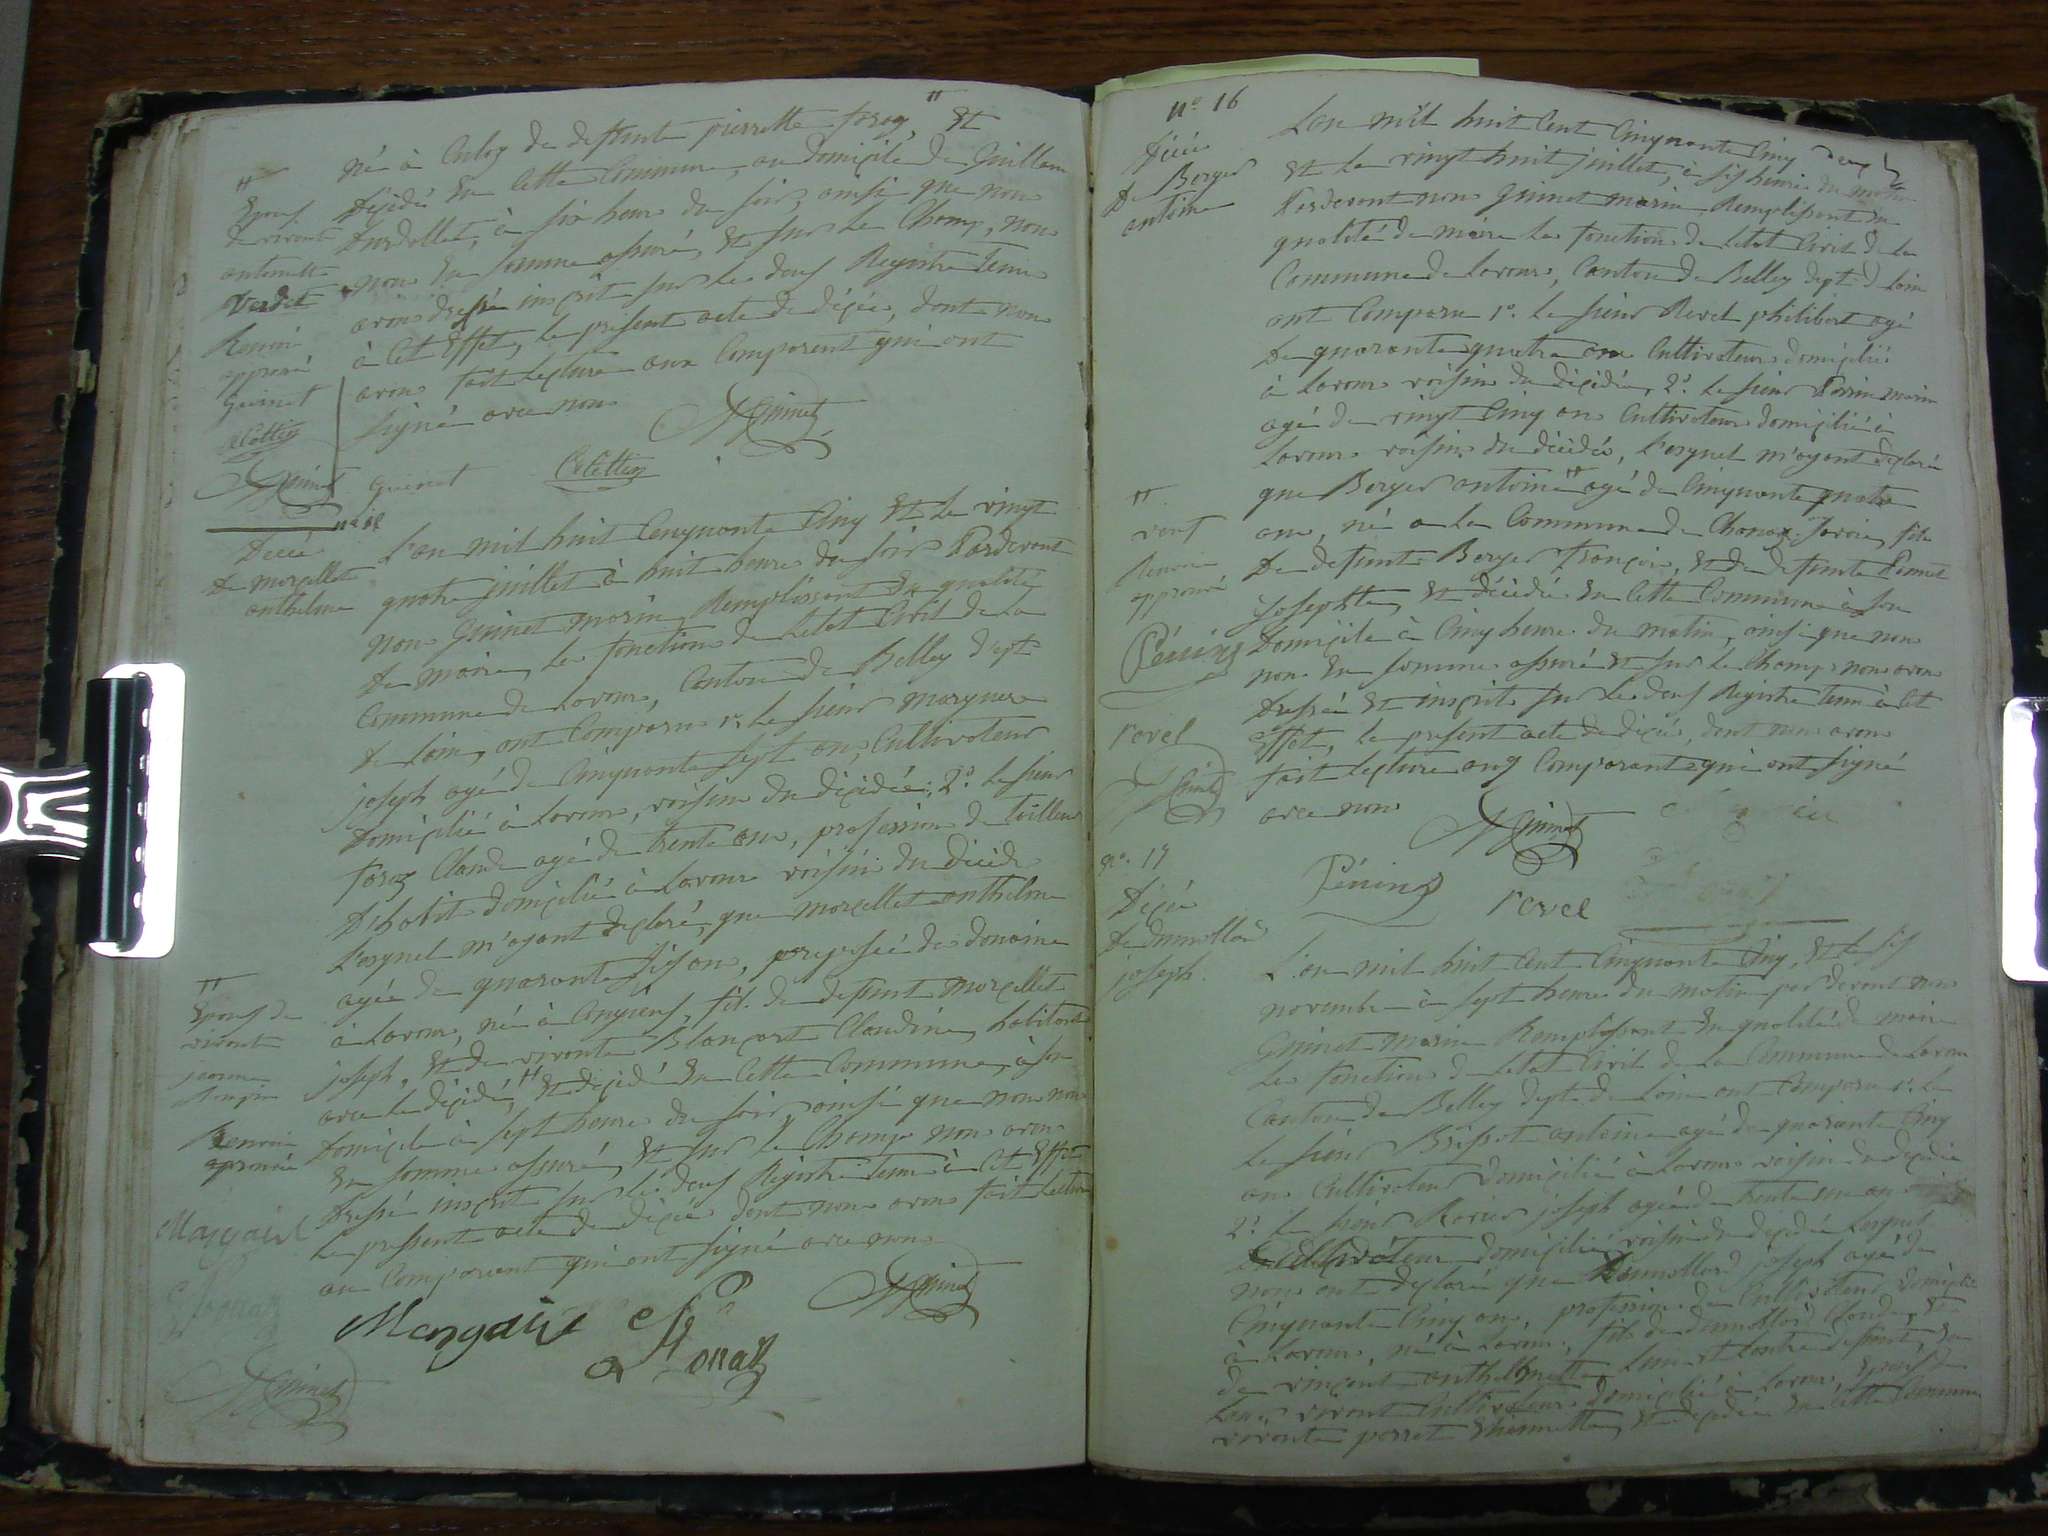 né à Culoz de deffunte pierrette foraz, " Et
Déjédé En Cette Commune, au domicile de Guillau
Dardellet, à six heure du soir, ainsi que nous
nous En somme assuré, Et sur le Champ, nous
avons dressé inscrit sur les deux Registre Tenu
à Cet Effet, le présent acte de déçée, dont nous
avons fait lecture aux Comparent qui ont
signé avec nous
"
Epoux
de vivante
antoinette
Verdet
Renvoi
approuvé
Guinet
Collettin
MGuinet
Guinet
Collettin
MGuinet
Décée
De marcellet
anthelme
L'an mil huit Cenquante Cinq Et le vingt
quatre juillet à huit heure du soir Pardevant
nous Guinet marin Remplissant En qualité
De maire, les fonction de Letat Civil de la
Commune de Lavour, Canton de Belley dept
de Lain, ont Comparu 1° le sieur marguere
joseph agé de Cinquante sept ans, Cultivateur
Domicilié à Lavour, voisin du déçédée, 2° le sieur
foraz Claude agé de trente ans, profession de tailleur
D'habit domicilié à Lavour voisin du décédé
Lesquel m'ayant déclaré, que marcellet anthelme
agée de quarante six ans, préposée des douaine
à Lavour, né à Conzieux, fils de deffunt marcellet
joseph, Et de vivante Blançart Claudine, habitant
avec le déçédé, " Et déçédé En Cette Commune, à son
Domicile à sept heure du soir, ainsi que nous nous
En somme assuré, Et sur le Champ nous avons
Dressé inscrit sur les deux Registre tenu à Cet Effet
le present acte de décée dont nous avons fait lecture
au Comparent qui ont signé avec nous
"
Epoux de
vivante
jeanne
Renvoi
aprouvée
MGuinet
MGuinet
n° 16
Décée
De Berger
antoine
L'an mil huit Cent Cinquante Cinq
Et le vingt huit juillet, à six heure du matin
Pardevant nous Guinet marin, Remplissant En
qualité de maire les fonction de Letat Civil de la
Commune de Lavour, Canton de Belley dept de Lain
ont Comparu 1° le sieur Revel philibert agé
De quarante quatre ans Cultivateur domicilié
à Lavour voisin du déçédée, 2° le sieur marin
agé de vingt Cinq ans Cultivateur domicilié à
Lavour voisin du décédée, Lesquel m'ayant déclaré
que Berger antoine " agé de Cinquante quatre
ans, né a la Commune de Chanaz Savoie, fils
De deffunt Berger françois, Et de deffunte
Josephte, Et décédé En Cette Commune à son
Domicile à Cinq heure du matin, ainsi que nous
nous En somme assuré Et sur le Champ nous avons
Dressé Et inscrit sur les deux Registre tenu à Cet
Effet, le present acte de déçée, dont nous avons
fait lecture aux Comparant qui ont signé
avec nous
"
veuf
Renvoi
approuvé
Pénin
revel
MGuinet
MGuinet
Pénin
revel
n° 17
Déçée
De dumollard
joseph
L'an mil huit Cent Cinquante Cinq, Et le six
novembre à sept heure du matin par devant nous
Guinet marin Remplissant En qualité de maire
les fonction de Letat Civil de la Commune de Lavour
Canton de Belley dept de Lain ont Comparu 1° le
le sieur Brissot antoine agé de quarante Cinq
ans Cultivateur domicilié à Lavour voisin du déçédée
2° le sieur joseph agée de trente un an
Cultivateur domicilié voisin du déçédée Lesquel
nous ont déclaré que Dumollard joseph agé de
Cinquante Cinq ans, profession de Cultivateur domicilié
à Lavour, né à Lavour, fils de dumollard Claude, Et
de vincent anthelmette L'un Et Lautre deffunt, En
leur vivant Cultivateur domicilié à Lavour, Epoux de
vivante perret Etiennette, Et déçédée En Cette Commune